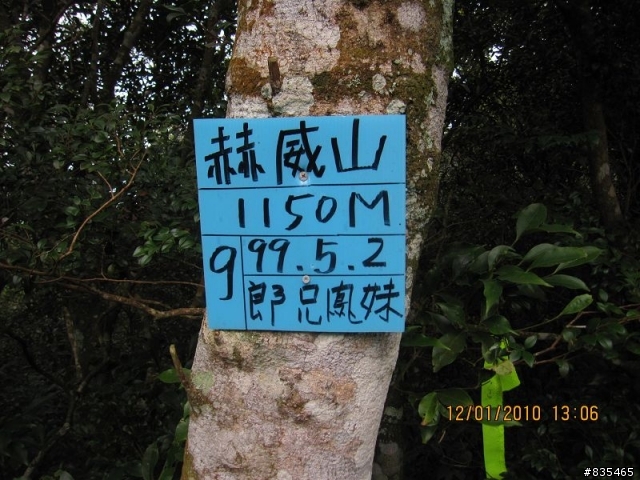 赫威山
1150M
9
99.5.2
郎兄鳳妹
12/01/2010 13:06
#835465